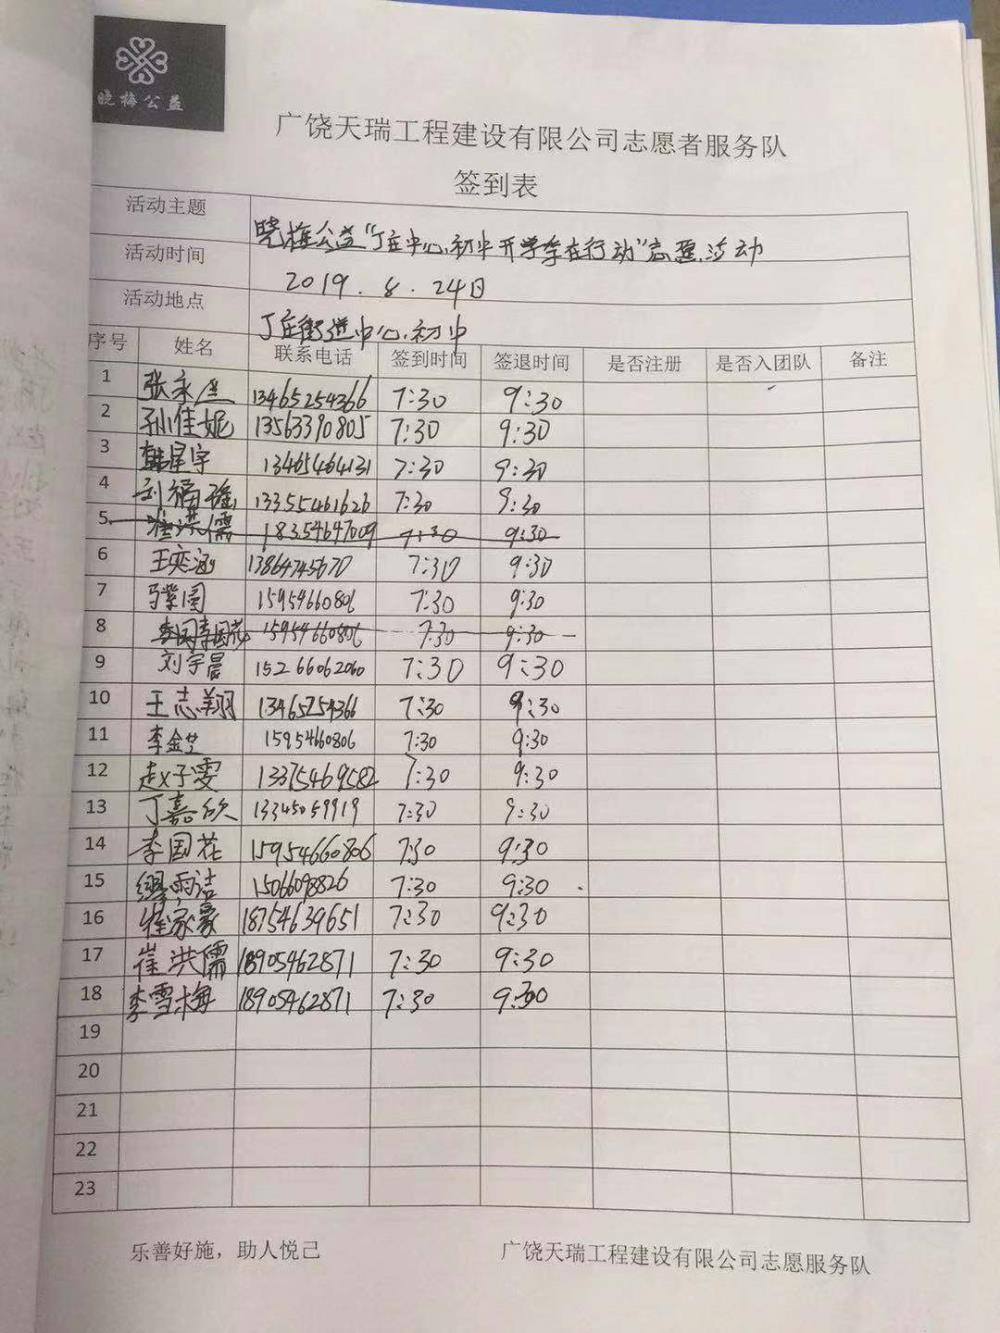 晓梅公益
广饶天瑞工程建设有限公司志愿者服务队
签到表
活动主题 晓梅公益“丁庄中心初中开学季在行动”志愿活动
活动时间 2019.8.24日
活动地点 丁庄街道中心初中
序号 姓名 联系电话 签到时间 签退时间 是否注册 是否入团队 备注
1 张永 13465254366 7:30 9:30
2 孙佳妮 13563390805 7:30 9:30
3 韩星宇 13465464131 7:30 9:30
4 刘福瑶 13355461626 7:30 9:30
5 崔洪儒 18354647009 7:30 9:30
6 王奕涵 13864745670 7:30 9:30
7 15954660806 7:30 9:30
8 李国李国花 15954660806 7:30 9:30
9 刘宇晨 15266062060 7:30 9:30
10 王志翔 13465254366 7:30 9:30
11 李金芝 15954660806 7:30 9:30
12 赵子雯 13375469582 7:30 9:30
13 丁嘉欣 13345059919 7:30 9:30
14 李国花 15954660806 7:30 9:30
15 缪雨洁 15066098826 7:30 9:30
16 崔家豪 18754639651 7:30 9:30
17 崔洪儒 18905462871 7:30 9:30
18 李雪梅 18905462871 7:30 9:30
19
20
21
22
23
乐善好施，助人悦己 广饶天瑞工程建设有限公司志愿服务队